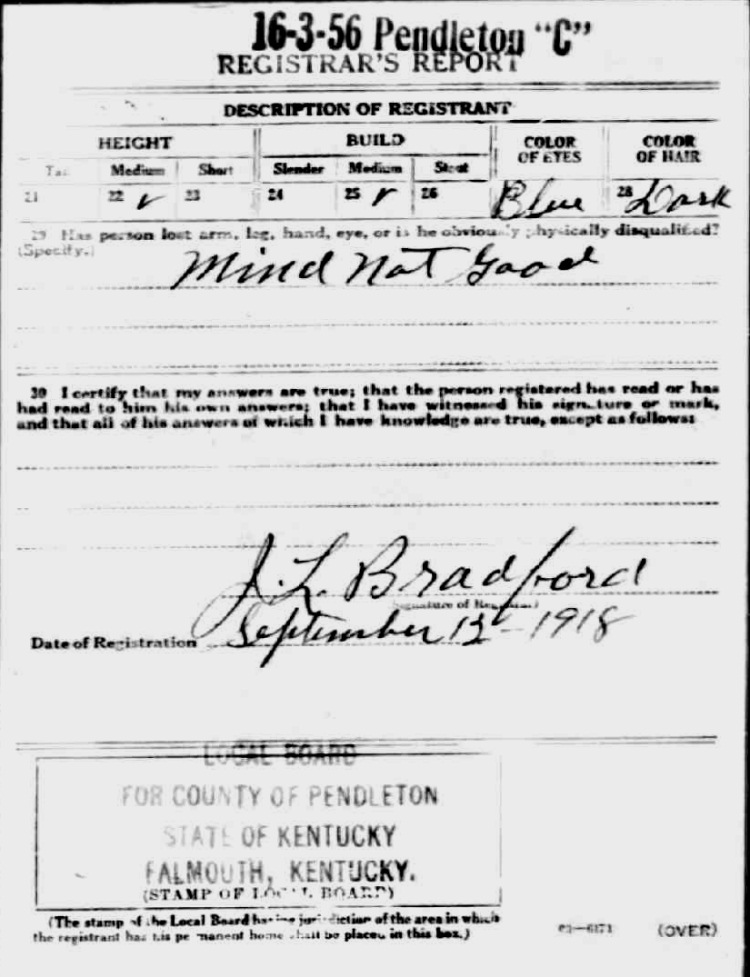 16-3-56 Pendleton "C"
REGISTRAR'S REPORT
DESCRIPTION OF REGISTRANT
HEIGHT BUILD COLOR OF EYES COLOR OF HAIR
Medium Short Slender Medium Stout
21 22 ✓ 23 24 25 ✓ 26 Blue 28 Dark
29 Has person lost arm, leg, hand, eye, or is he obviously physically disqualified?
(Specify.) Mind Not Good
30 I certify that my answers are true; that the person registered has read or has
had read to him his own answers; that I have witnessed his signature or mark,
and that all of his answers of which I have knowledge are true, except as follows:
J. L. Bradford
(Signature of Registrar)
Date of Registration September 12 - 1918
LOCAL BOARD
FOR COUNTY OF PENDLETON
STATE OF KENTUCKY
FALMOUTH, KENTUCKY.
(STAMP OF LOCAL BOARD)
(The stamp of the Local Board having jurisdiction of the area in which
the registrant has his permanent home shall be placed in this box.)
(OVER)